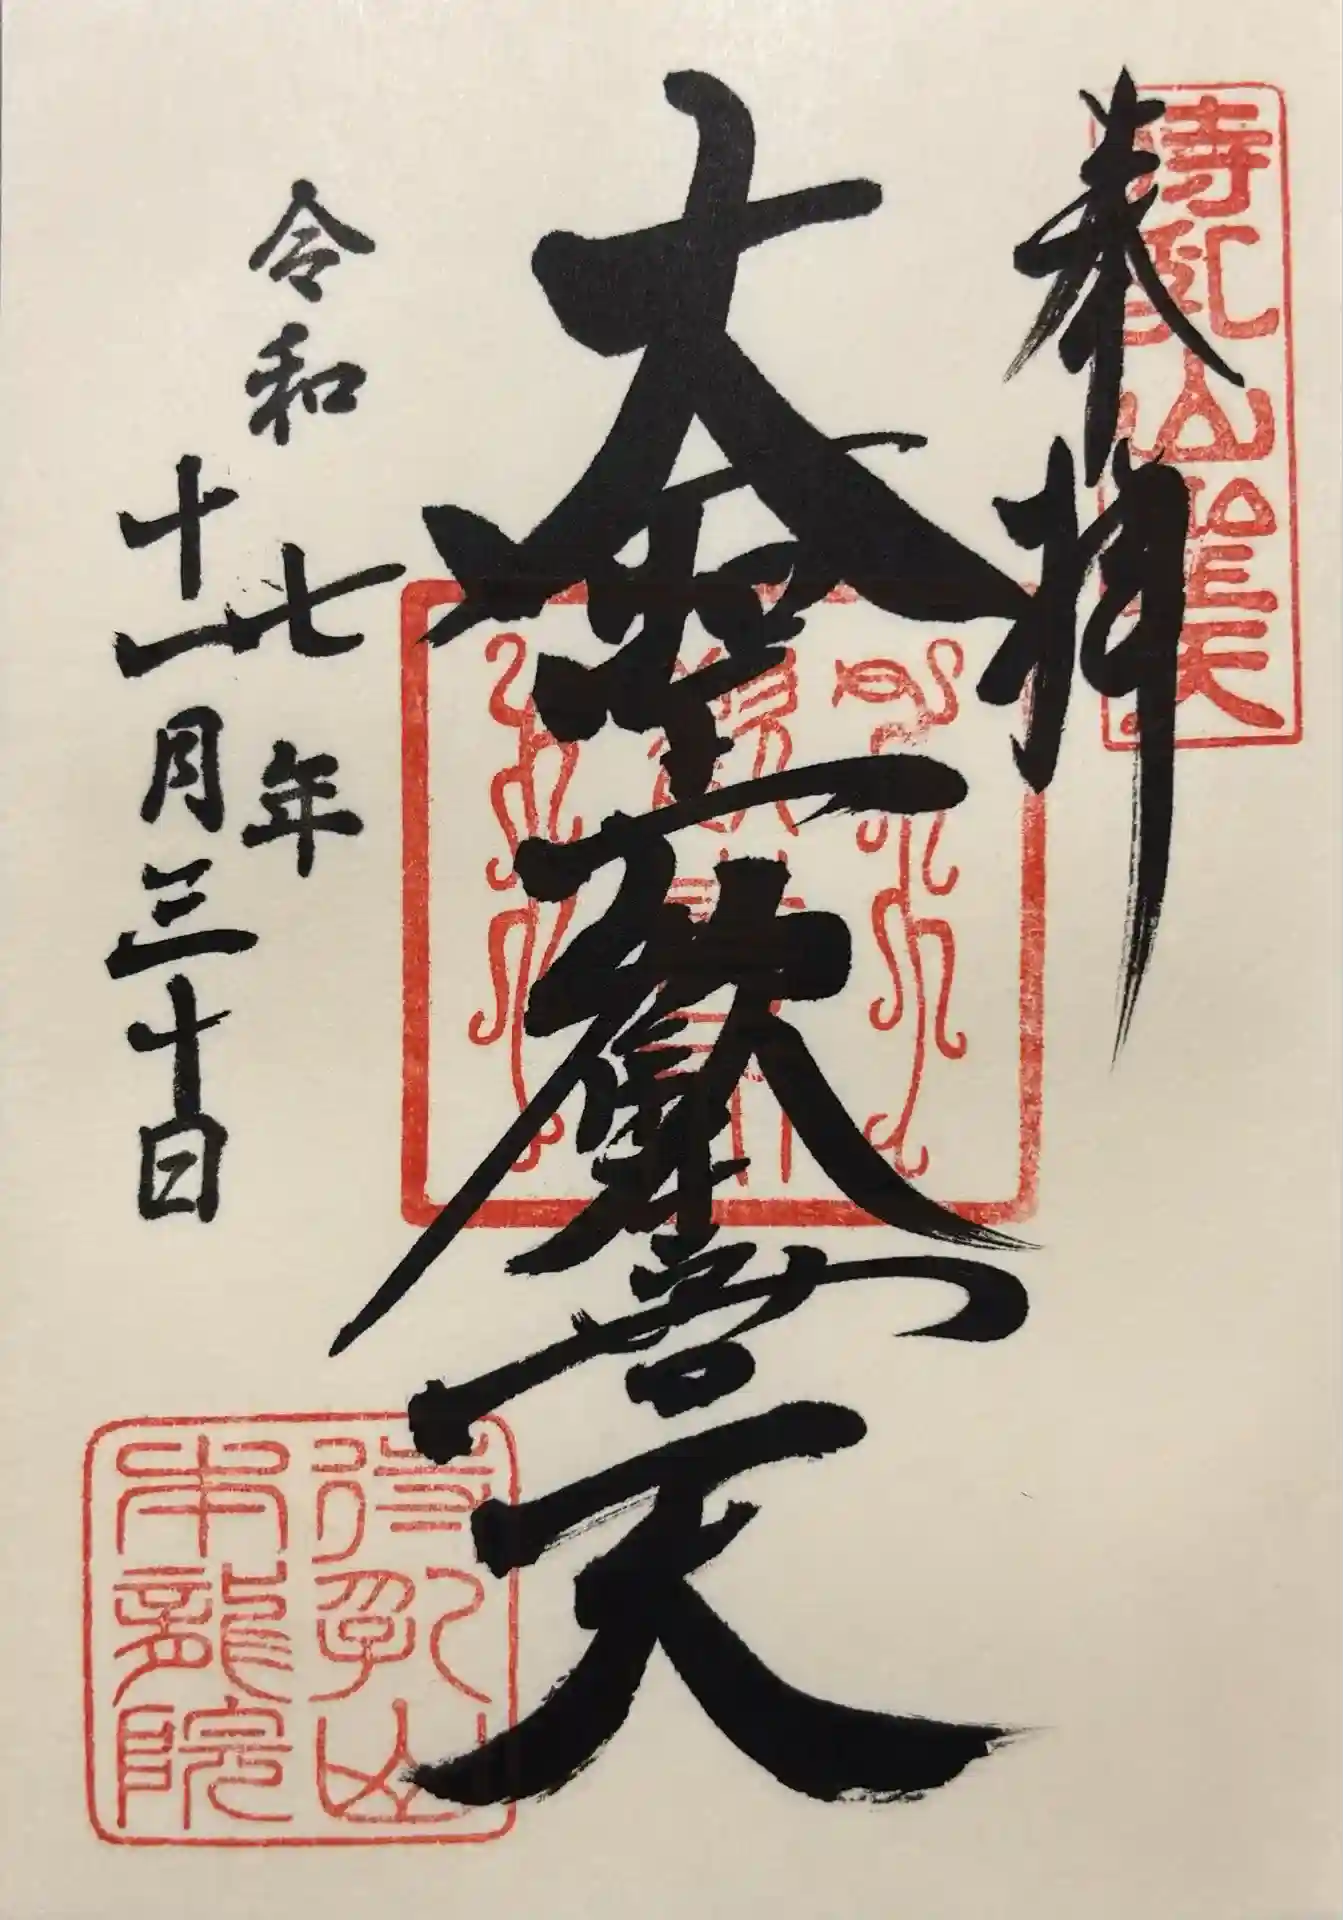 奉拝
待乳山聖天
大聖歓喜天
令和七年
十一月三十日
待乳山
本龍院